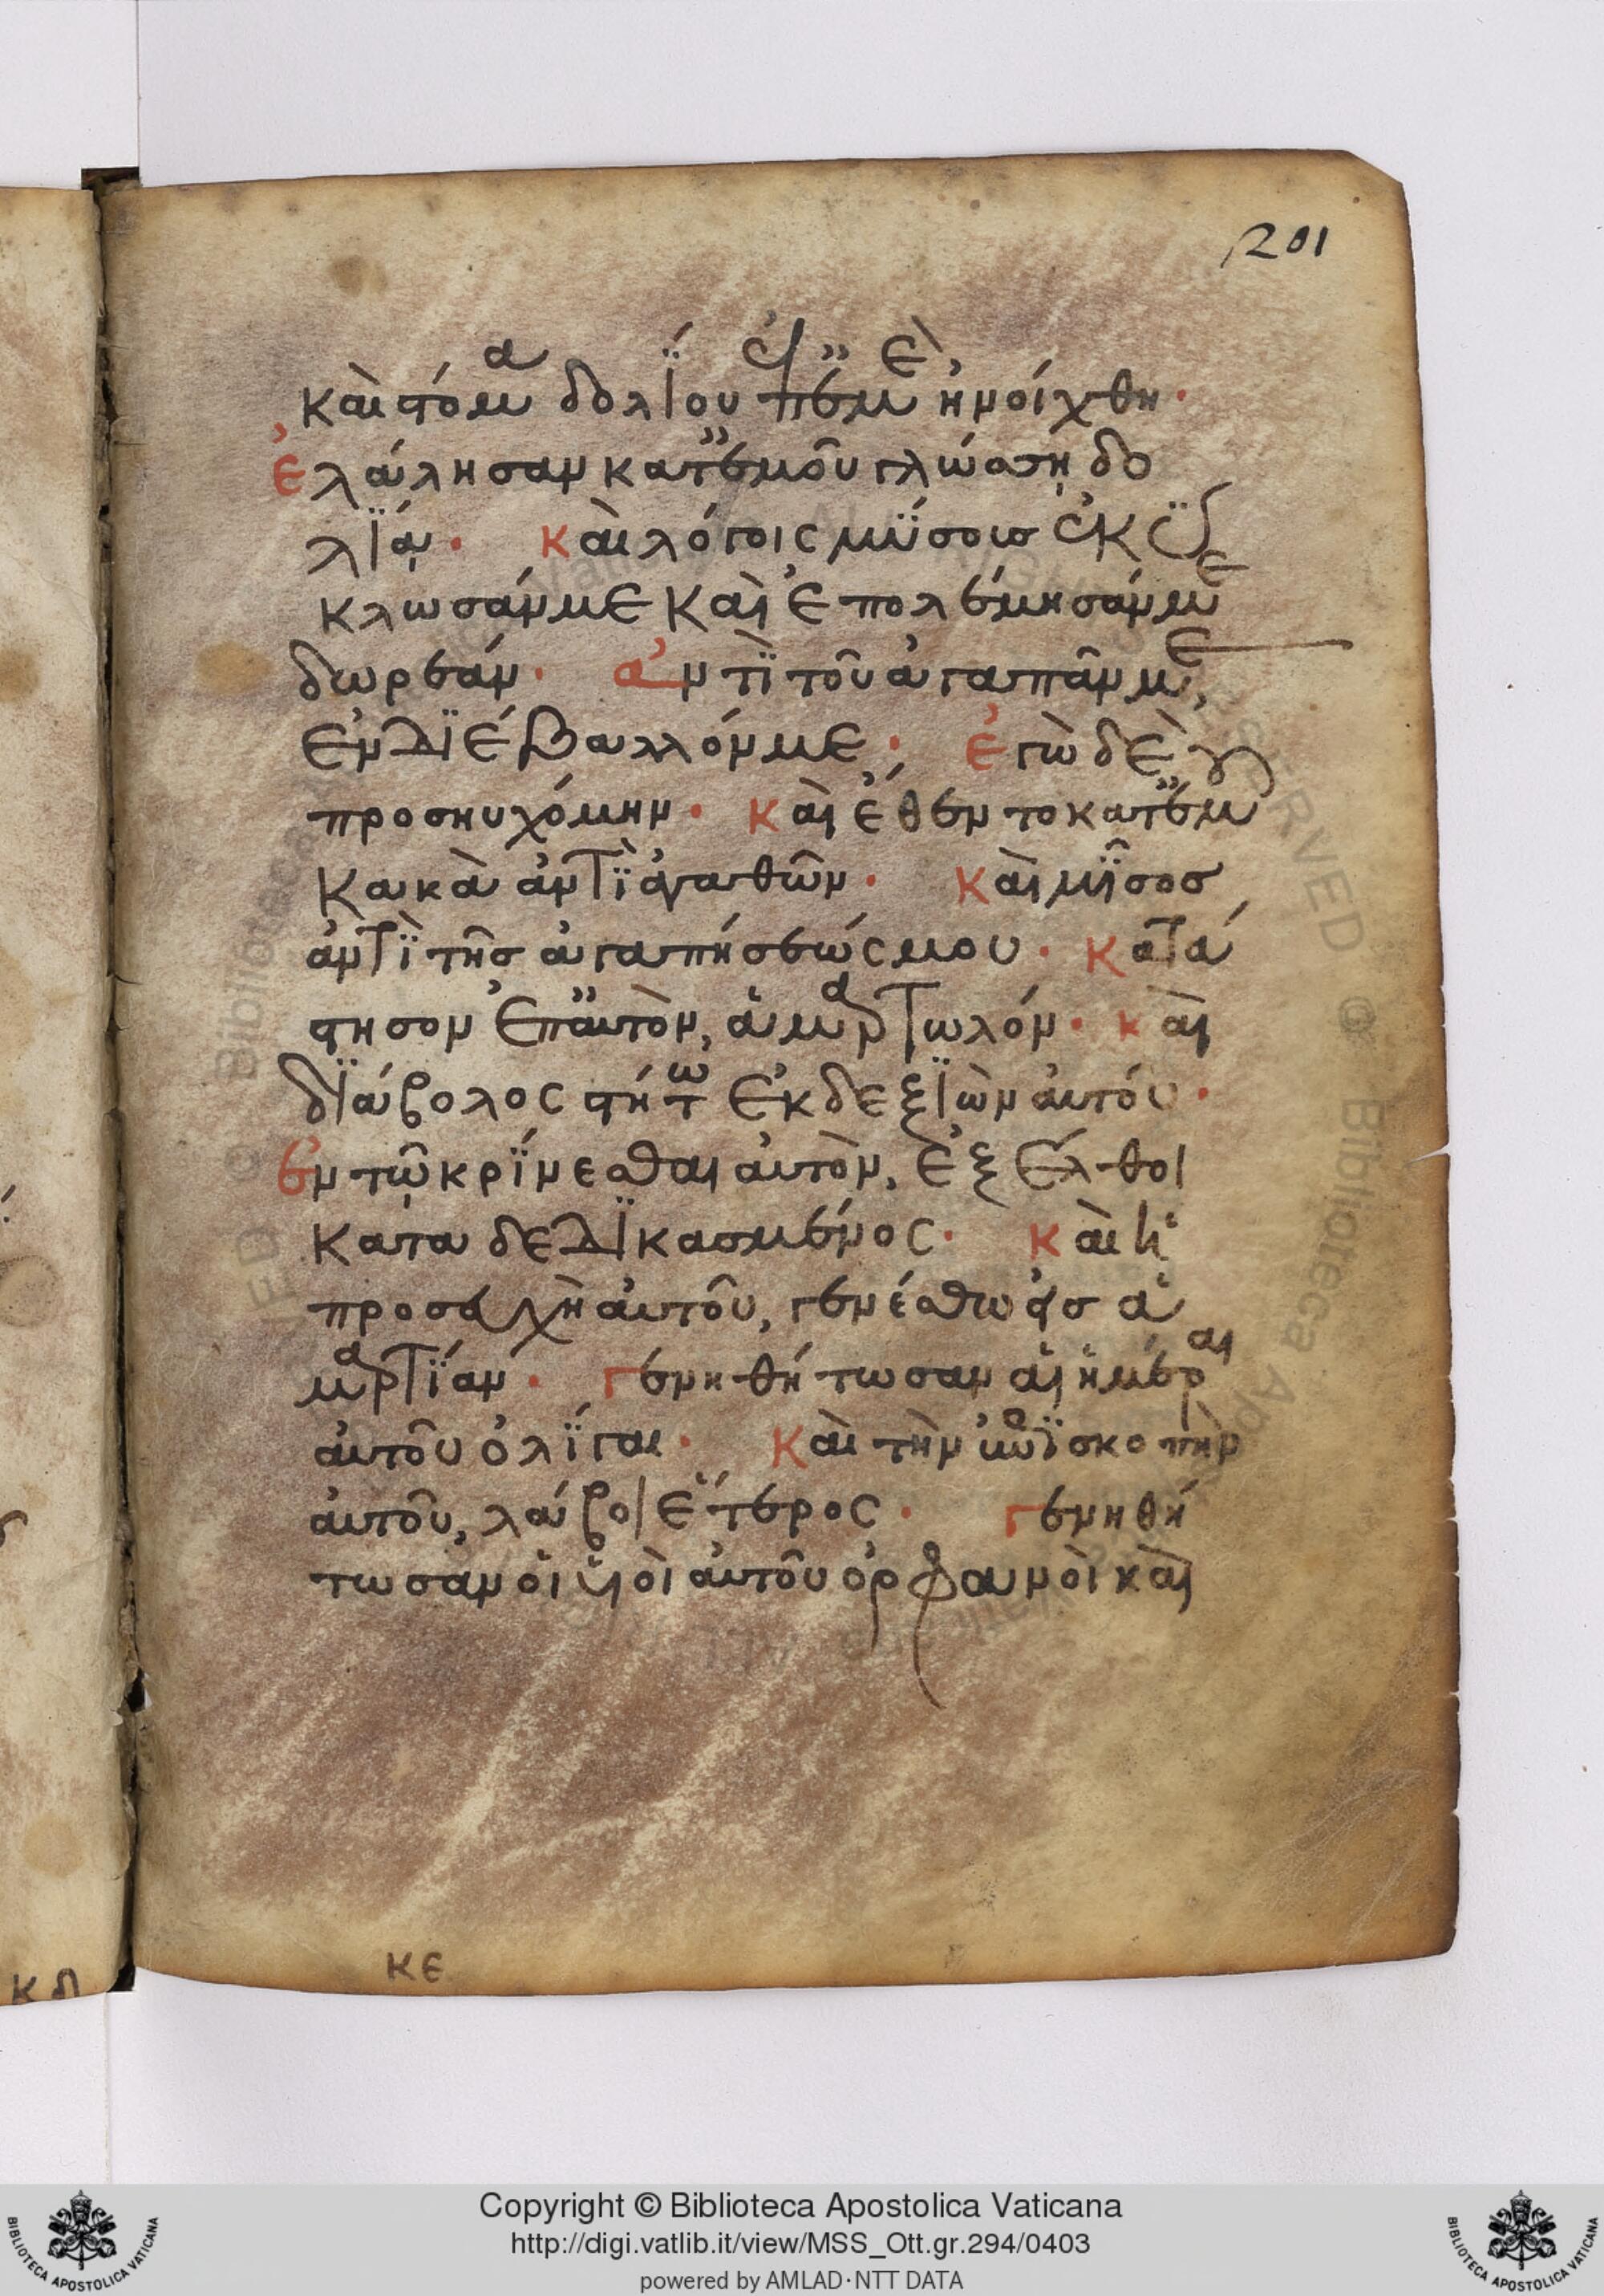 201
καὶ στόμα δολΐου ἐπ' ἐμὲ ἠνοίχθη·
ἐλάλησαν κατ' ἐμοῦ γλώσσῃ δο
λΐᾳ· καὶ λόγοις μΐσους ἐκύ
κλωσάν με καὶ ἐπολέμησάν με
δωρεάν· ἀντῒ τοῦ ἀγαπᾶν με,
ἐνδϊέβαλλόν με· ἐγὼ δὲ
προσηυχόμην· καὶ ἔθεντο κατ' ἐμοῦ
κακὰ ἀντῒ ἀγαθῶν· καὶ μῖσος
ἀντῒ τῆς ἀγαπήσεώς μου· κατά
στησον ἐπ' αὐτὸν, ἁμαρτωλόν· καὶ
δϊάβολος στήτω ἐκ δεξϊῶν αὐτοῦ·
ἐν τῷ κρΐνεσθαι αὐτὸν, ἐξέλθοι
καταδεδϊκασμένος· καὶ ἡ
προσευχὴ αὐτοῦ, γενέσθω εἰς ἁ
μαρτΐαν· γενηθήτωσαν αἱ ἡμέραι
αὐτοῦ ὀλΐγαι· καὶ τὴν ἐπϊσκοπὴν
αὐτοῦ, λάβοι ἕτερος· γενηθή
τωσαν οἱ υἱοὶ αὐτοῦ ὀρφανοὶ καὶ
κε
κδ
Copyright © Biblioteca Apostolica Vaticana
http://digi.vatlib.it/view/MSS_Ott.gr.294/0403
powered by AMLAD·NTT DATA
BIBLIOTECA APOSTOLICA VATICANA
BIBLIOTECA APOSTOLICA VATICANA